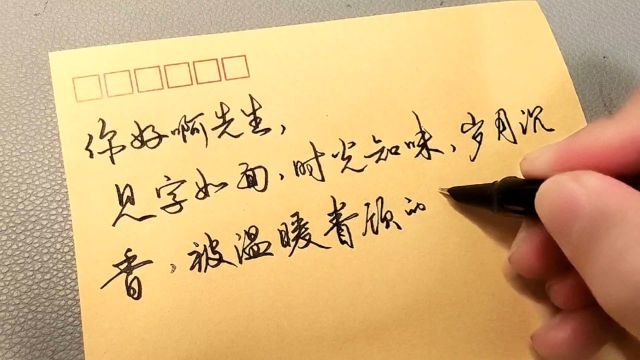 你好啊先生，
见字如面，时光知味，岁月沉
香，被温暖眷顾的